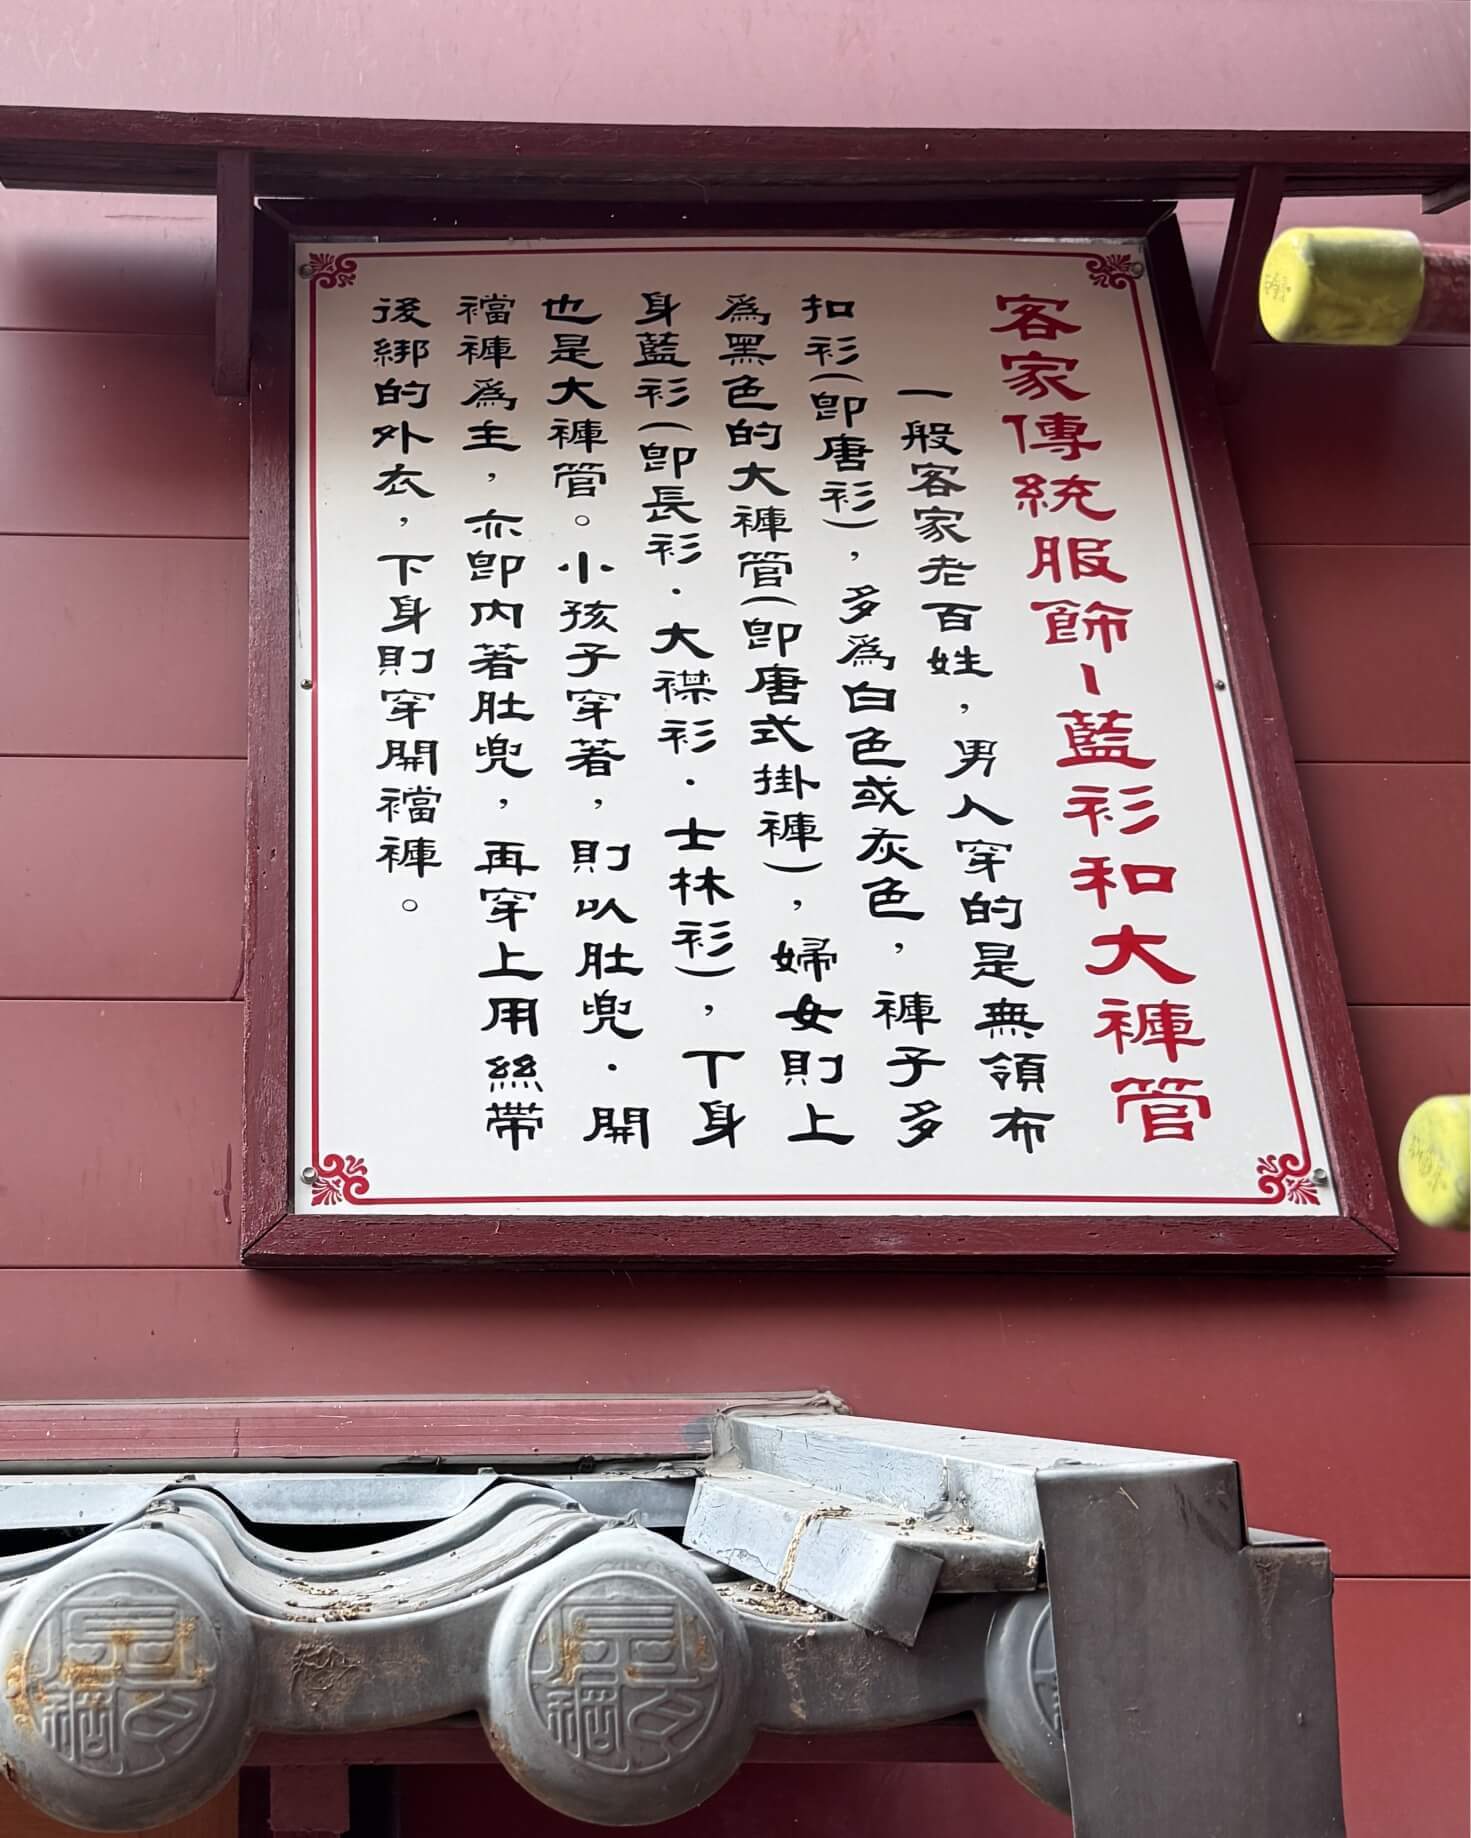 客家傳統服飾－藍衫和大褲管
一般客家老百姓，男人穿的是無領布
扣衫(即唐衫)，多為白色或灰色，褲子多
為黑色的大褲管(即唐式掛褲)，婦女則上
身藍衫(即長衫．大襟衫．士林衫)，下身
也是大褲管。小孩子穿著，則以肚兜．開
襠褲為主，亦即內著肚兜，再穿上用絲帶
後綁的外衣，下身則穿開襠褲。